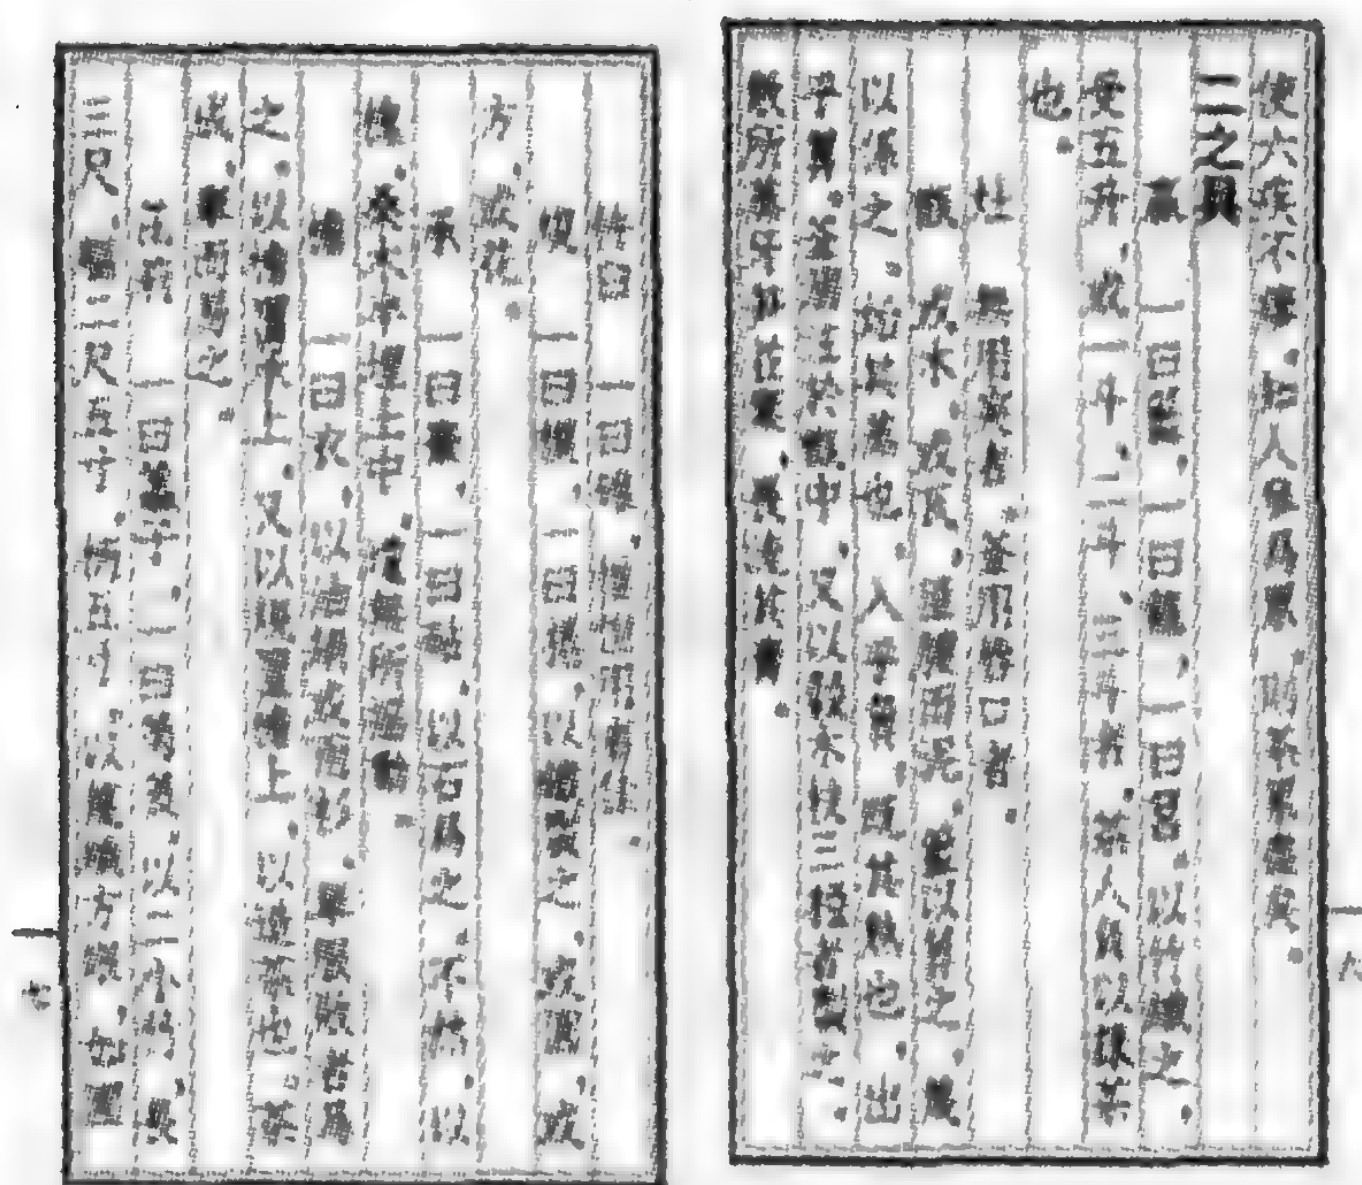 使六疾不瘳知人參為累則茶累盡矣
二之具
籯一曰籃一曰籠一曰筥以竹織之
受五升或一斗二斗三斗者茶人負以採茶
也
灶無用突者釜用唇口者
甑或木或瓦匪腰而泥籃以箄之篾
以系之始其蒸也入乎箄既其熟也出
乎箄釜涸注於甑中又以榖木枝三椏者製之
散所蒸牙筍并葉畏流其膏
杵臼一曰碓惟恒用者佳
規一曰模一曰棬以鐵制之或圓或
方或花
承一曰臺一曰砧以石為之不然以
槐桑木半埋地中遣無所搖動
襜一曰衣以油絹或雨衫單服敗者為
之以襜置承上又以規置襜上以造茶也茶
成舉而易之
芘莉一曰羸子一曰篣筤以二小竹長
三尺軀二尺五寸柄五寸以篾織方眼如圃